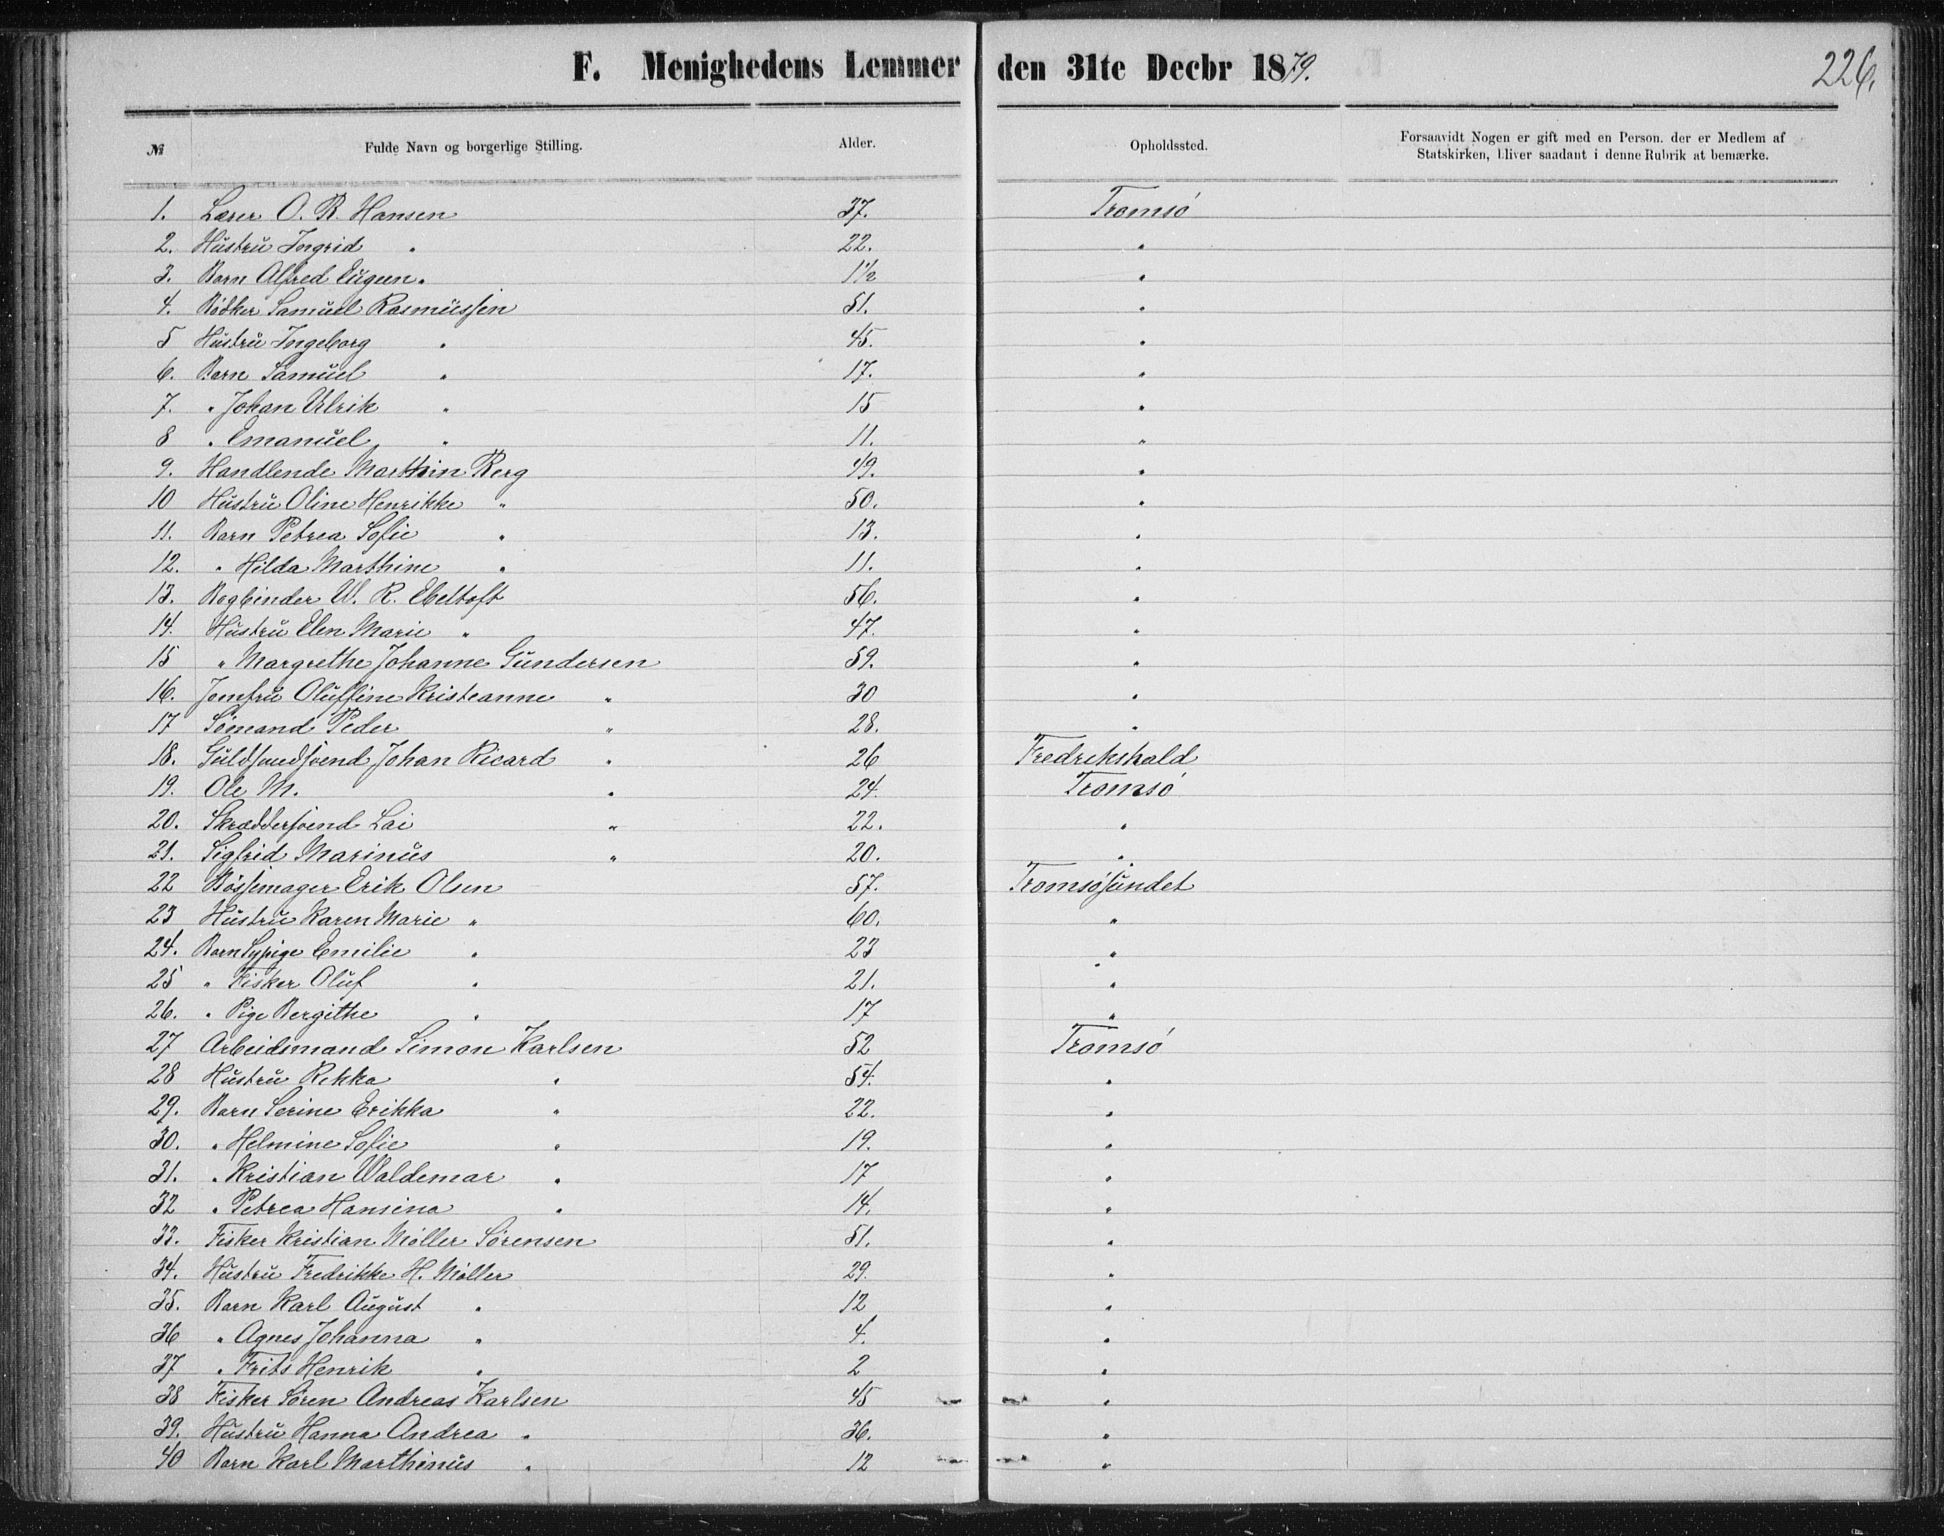 F. Menighedens Lemmer den 31te Decbr 1879. 226.
№ Fulde Navn og borgerlige Stilling. Alder. Opholdssted. Forsaavidt Nogen er gift med en Person. der er Medlem af
Statskirken, bliver saadant i denne Rubrik at bemærke.
1. Lærer O. B. Hansen 37. Tromsö
2. Hustru Ingrid " 22. "
3. Barn Alfred Eugen " 1½ "
4. Bödker Samuel Rasmussen 51. "
5 Hustru Ingeborg " 45. "
6. Barn Samuel " 17. "
7. " Johan Ulrik " 15 "
8 " Emanuel " 11. "
9. Handlende Marthin Berg 49. "
10 Hustru Oline Henrikke " 50. "
11. Barn Petrea Sofie " 13. "
12. " Hilda Marthine " 11. "
13. Bogbinder W. R. Ebeltoft 56. "
14. Hustru Elen Marie " 47. "
15 " Margrethe Johanne Gundersen 59. "
16. Jomfru Oluffine Kristeanne " 30 "
17 Sömand Peder " 28. "
18. Guldsmedsvend Johan Ricard " 26 Fredrikshald
19. Ole M. " 24. Tromsö
20. Skræddersvend Lai " 22. "
21. Sigfrid Marinus " 20. "
22 Bössemager Erik Olsen 57. Tromsösundet
23 Hustru Karen Marie " 60. "
24. Barn Sypige Emilie " 23 "
25 " Fisker Oluf " 21. "
26. " Pige Bergithe " 17 "
27 Arbeidsmand Simon Karlsen 52 Tromsö
28 Hustru Rikka " 54. "
29. Barn Serine Erikka " 22. "
30. " Helmine Sofie " 19. "
31. " Kristian Waldemar " 17 "
32 " Petrea Hansina " 14. "
33. Fisker Kristian Möller Sörensen 51. "
34. Hustru Fredrikke H. Möller 29. "
35. Barn Karl August " 12 "
36 " Agnes Johanna " 4. "
37 " Frits Henrik " 2 "
38 Fisker Sören Andreas Karlsen 45 "
39. Hustru Hanna Andrea " 36. "
40 Barn Karl Marthinus " 12 "